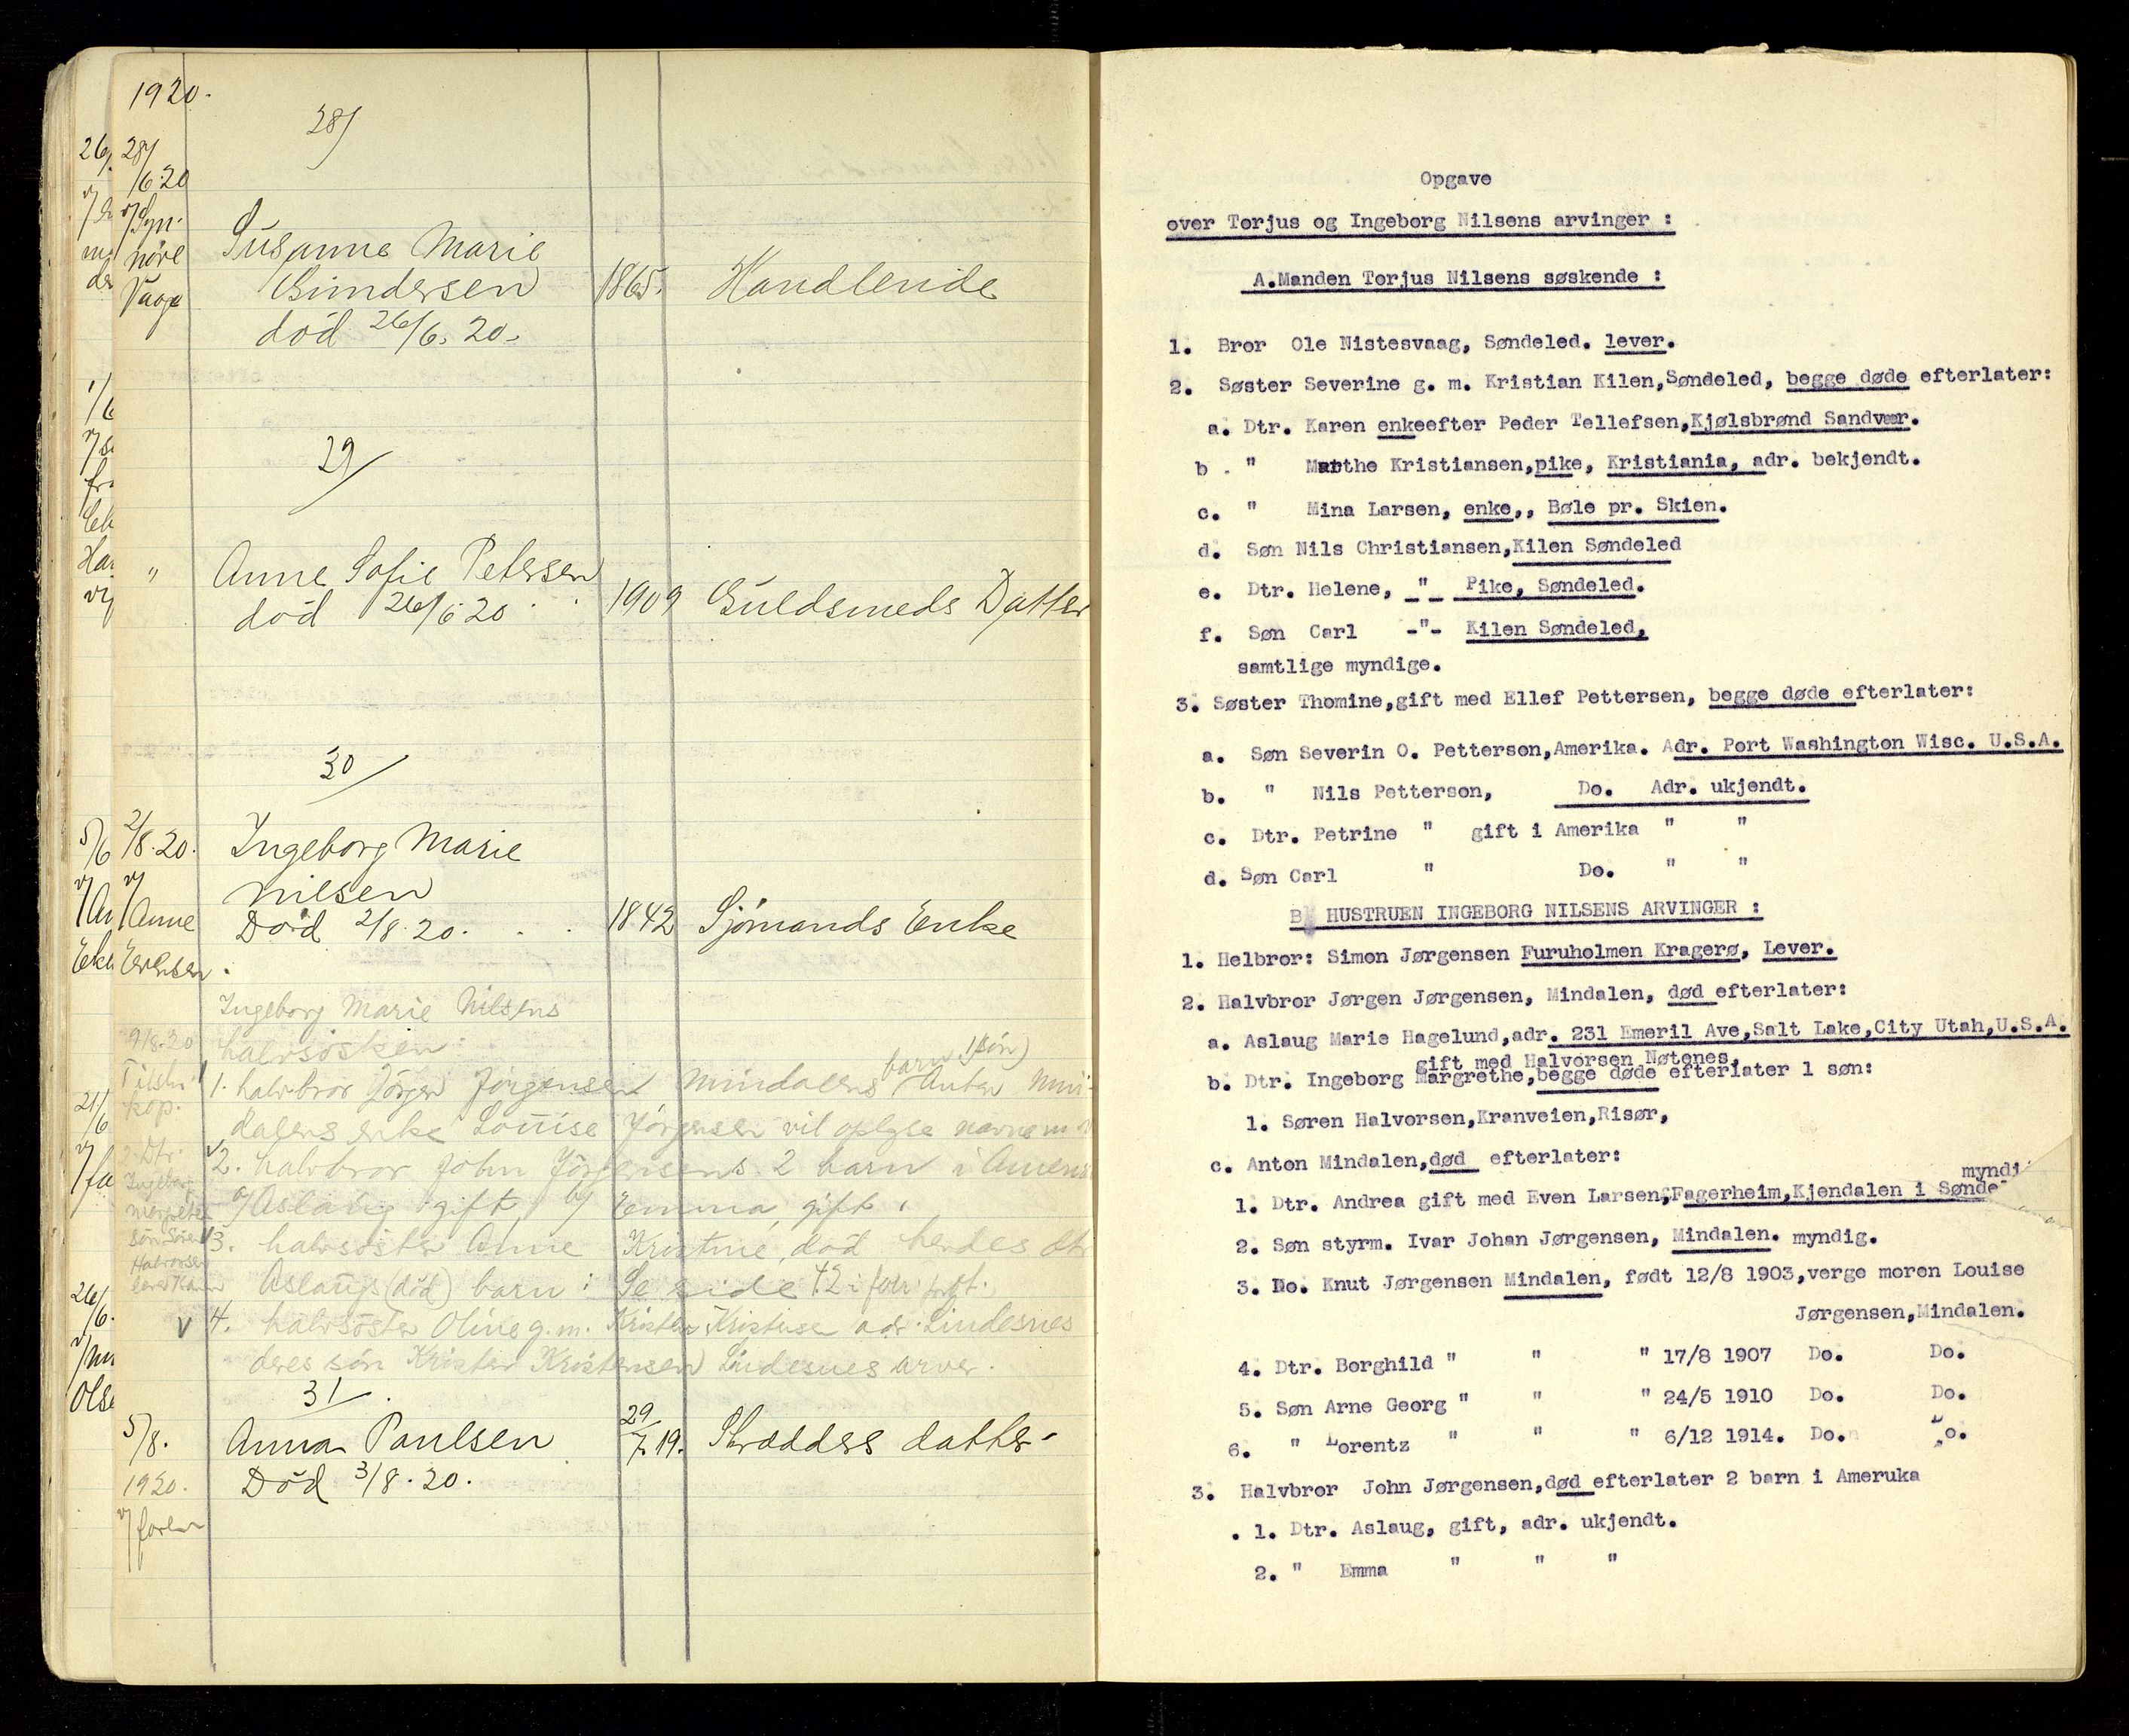 1920.
28/
28/
/6.20
v/ Syn-
növe
Vaage
Susanne Marie
Gundersen
död 26/6.20.
1865.
Handlende
29/
"
Anne Sofie Petersen
död 26/6 20
1909
Guldsmeds Datter
30/
2/8.20.
v/
Anne
Eriksen
Ingeborg Marie
Nilsen
Död 2/8 20.
1842
Sjömands Enke
Ingeborg Marie Nilsens
halvsösken
9/8.20
1. halvbror Jörgen Jörgensen Mindalens barn (1 sön) Anton Min-
dalens enke Louise Jörgensen vil oplyse navne
2 Dtr.
Ingeborg
Margrete
sön Sören
Halvorsen
2. halvbror John Jörgensens 2 barn i Amerika
a/ Aslaug gift, b/ Emma, gift.
3. halvsöster Anne Kristine, död hendes dtr
Aslaugs (död) barn: Se side 42 i forr. prot.
V 4. halvsöster Oline g.m. Kristen Kristensen adr. Lindesnes
deres sön Kristen Kristensen Lindesnes arver.
31/.
5/8.
1920.
v/ faren
Anna Paulsen
Död 3/8.20.
29/7.19.
Skrædders datter
Opgave
over Torjus og Ingeborg Nilsens arvinger :
A.Manden Torjus Nilsens søskende :
1. Bror Ole Nistesvaag, Søndeled. lever.
2. Søster Severine g. m. Kristian Kilen,Søndeled, begge døde efterlater:
a. Dtr. Karen enkeefter Peder Tellefsen,Kjølsbrønd Sandvær.
b . " Marthe Kristiansen,pike, Kristiania, adr. bekjendt.
c. " Mina Larsen, enke,, Bøle pr. Skien.
d. Søn Nils Christiansen,Kilen Søndeled
e. Dtr. Helene, " Pike, Søndeled.
f. Søn Carl -"- Kilen Søndeled,
samtlige myndige.
3. Søster Thomine,gift med Ellef Pettersen, begge døde efterlater:
a. Søn Severin O. Petterson,Amerika. Adr. Port Washington Wisc. U.S.A.
b. " Nils Petterson, Do. Adr. ukjendt.
c. Dtr. Petrine " gift i Amerika " "
d. Søn Carl " Do. " "
B HUSTRUEN INGEBORG NILSENS ARVINGER :
1. Helbror: Simon Jørgensen Furuholmen Kragerø, Lever.
2. Halvbror Jørgen Jørgensen, Mindalen, død efterlater:
a. Aslaug Marie Hagelund,adr. 231 Emeril Ave,Salt Lake,City Utah,U.S.A.
gift med Halvorsen Nøtenes,
b. Dtr. Ingeborg Margrethe,begge døde efterlater 1 søn:
1. Søren Halvorsen,Kranveien,Risør,
c. Anton Mindalen,død efterlater:
myndi
1. Dtr. Andrea gift med Even Larsen,Fagerheim,Kjendalen i Sønde
2. Søn styrm. Ivar Johan Jørgensen, Mindalen. myndig.
3. Do. Knut Jørgensen Mindalen, født 12/8 1903,verge moren Louise
Jørgensen,Mindalen.
4. Dtr. Borghild " " " 17/8 1907 Do. Do.
5. Søn Arne Georg " " " 24/5 1910 Do. Do.
6. " Lorentz " " " 6/12 1914. Do. Do.
3. Halvbror John Jørgensen,død efterlater 2 barn i Ameruka
. 1. Dtr. Aslaug, gift, adr. ukjendt.
2. " Emma " " "